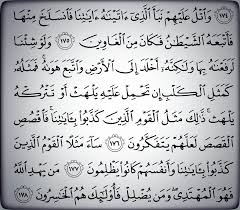 ١٧٤ وَٱتْلُ عَلَيْهِمْ نَبَأَ ٱلَّذِىٓ ءَاتَيْنَٰهُ ءَايَٰتِنَا فَٱنسَلَخَ مِنْهَا
فَأَتْبَعَهُ ٱلشَّيْطَٰنُ فَكَانَ مِنَ ٱلْغَاوِينَ ١٧٥ وَلَوْ شِئْنَا
لَرَفَعْنَٰهُ بِهَا وَلَٰكِنَّهُۥٓ أَخْلَدَ إِلَى ٱلْأَرْضِ وَٱتَّبَعَ هَوَىٰهُ فَمَثَلُهُۥ
كَمَثَلِ ٱلْكَلْبِ إِن تَحْمِلْ عَلَيْهِ يَلْهَثْ أَوْ تَتْرُكْهُ
يَلْهَث ذَّٰلِكَ مَثَلُ ٱلْقَوْمِ ٱلَّذِينَ كَذَّبُوا۟ بِـَٔايَٰتِنَا فَٱقْصُصِ
ٱلْقَصَصَ لَعَلَّهُمْ يَتَفَكَّرُونَ ١٧٦ سَآءَ مَثَلًا ٱلْقَوْمُ ٱلَّذِينَ
كَذَّبُوا۟ بِـَٔايَٰتِنَا وَأَنفُسَهُمْ كَانُوا۟ يَظْلِمُونَ ١٧٧ مَن يَهْدِ ٱللَّهُ
فَهُوَ ٱلْمُهْتَدِى وَمَن يُضْلِلْ فَأُو۟لَٰٓئِكَ هُمُ ٱلْخَٰسِرُونَ ١٧٨